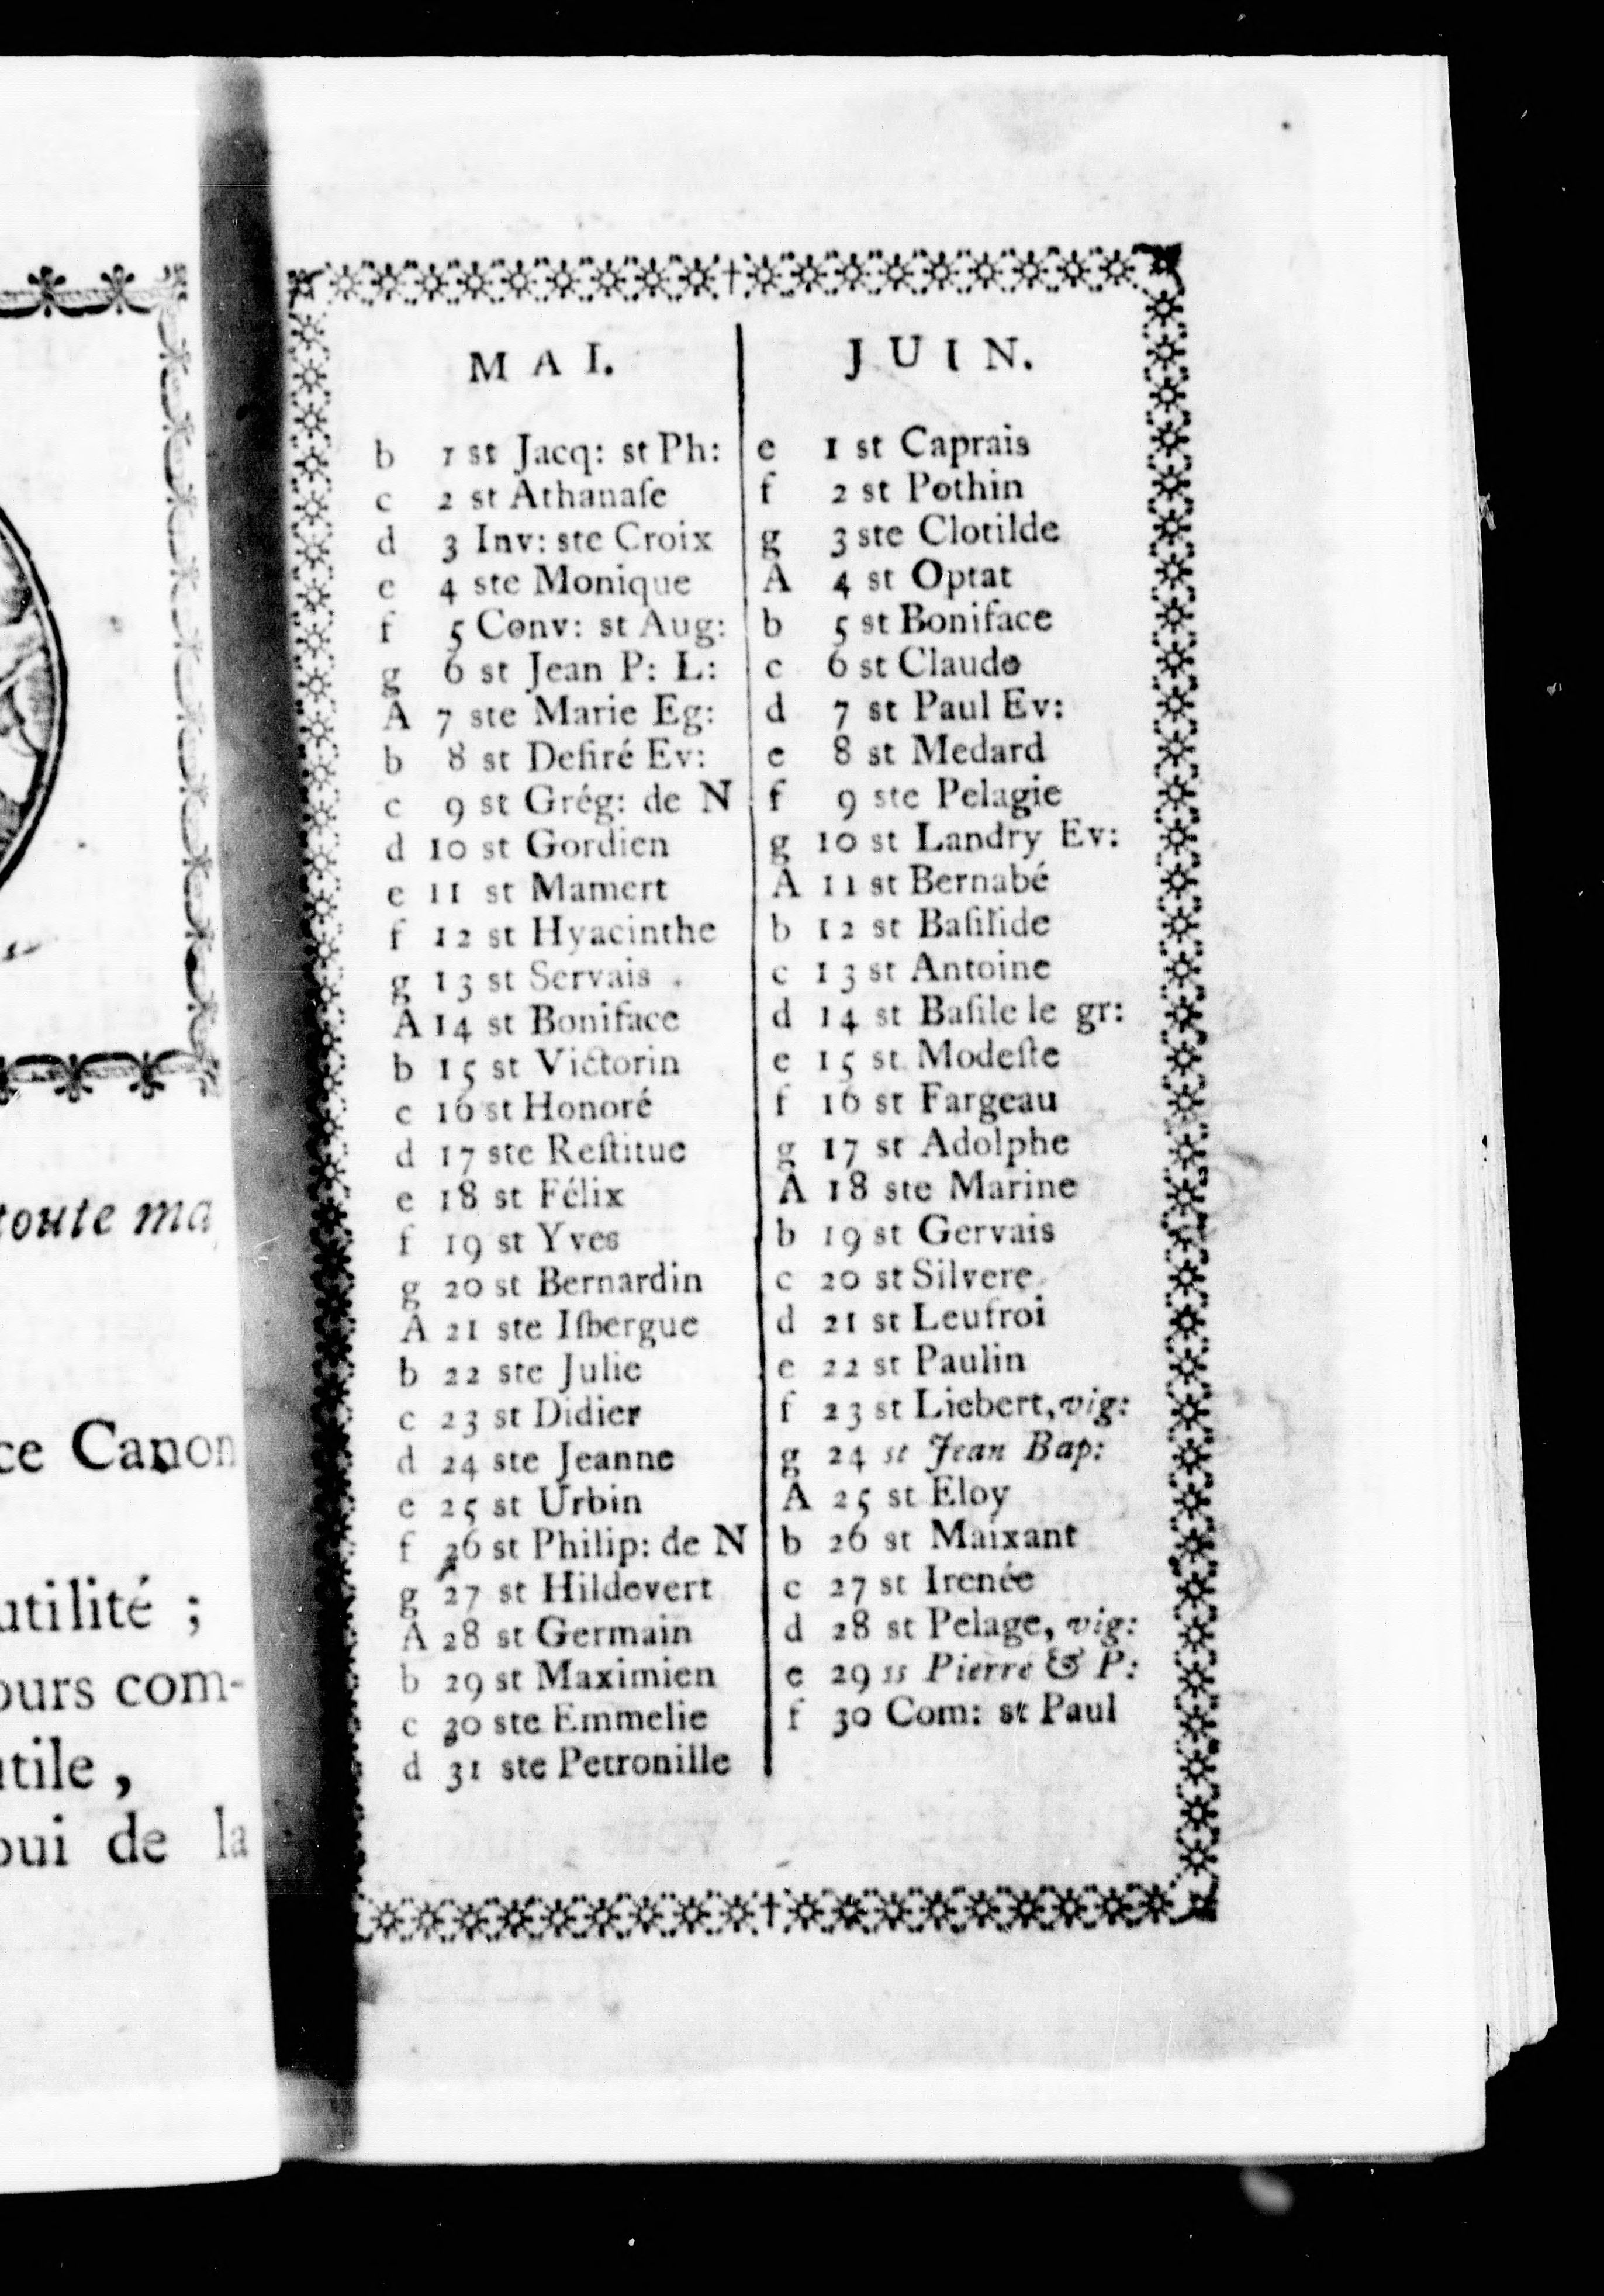 toute ma
ce Canon
utilité ;
ours com-
tile ,
oui de la
MAI.
b 1 st Jacq: st Ph:
c 2 st Athanaſe
d 3 Inv: ste Croix
e 4 ste Monique
f 5 Conv: st Aug:
g 6 st Jean P: L:
A 7 ste Marie Eg:
b 8 st Deſiré Ev:
c 9 st Grég: de N
d 10 st Gordien
e 11 st Mamert
f 12 st Hyacinthe
g 13 st Servais
A 14 st Boniface
b 15 st Victorin
c 16 st Honoré
d 17 ste Reſtitue
e 18 st Félix
f 19 st Yves
g 20 st Bernardin
A 21 ste Iſbergue
b 22 ste Julie
c 23 st Didier
d 24 ste Jeanne
e 25 st Urbin
f 26 st Philip: de N
g 27 st Hildevert
A 28 st Germain
b 29 st Maximien
c 30 ste Emmelie
d 31 ste Petronille
JUIN.
e 1 st Caprais
f 2 st Pothin
g 3 ste Clotilde
A 4 st Optat
b 5 st Boniface
c 6 st Claude
d 7 st Paul Ev:
e 8 st Medard
f 9 ste Pelagie
g 10 st Landry Ev:
A 11 st Bernabé
b 12 st Baſilide
c 13 st Antoine
d 14 st Baſile le gr:
e 15 st Modeſte
f 16 st Fargeau
g 17 st Adolphe
A 18 ste Marine
b 19 st Gervais
c 20 st Silvere
d 21 st Leufroi
e 22 st Paulin
f 23 st Liebert, vig:
g 24 st Jean Bap:
A 25 st Eloy
b 26 st Maixant
c 27 st Irenée
d 28 st Pelage, vig:
e 29 ss Pierre & P:
f 30 Com: st Paul